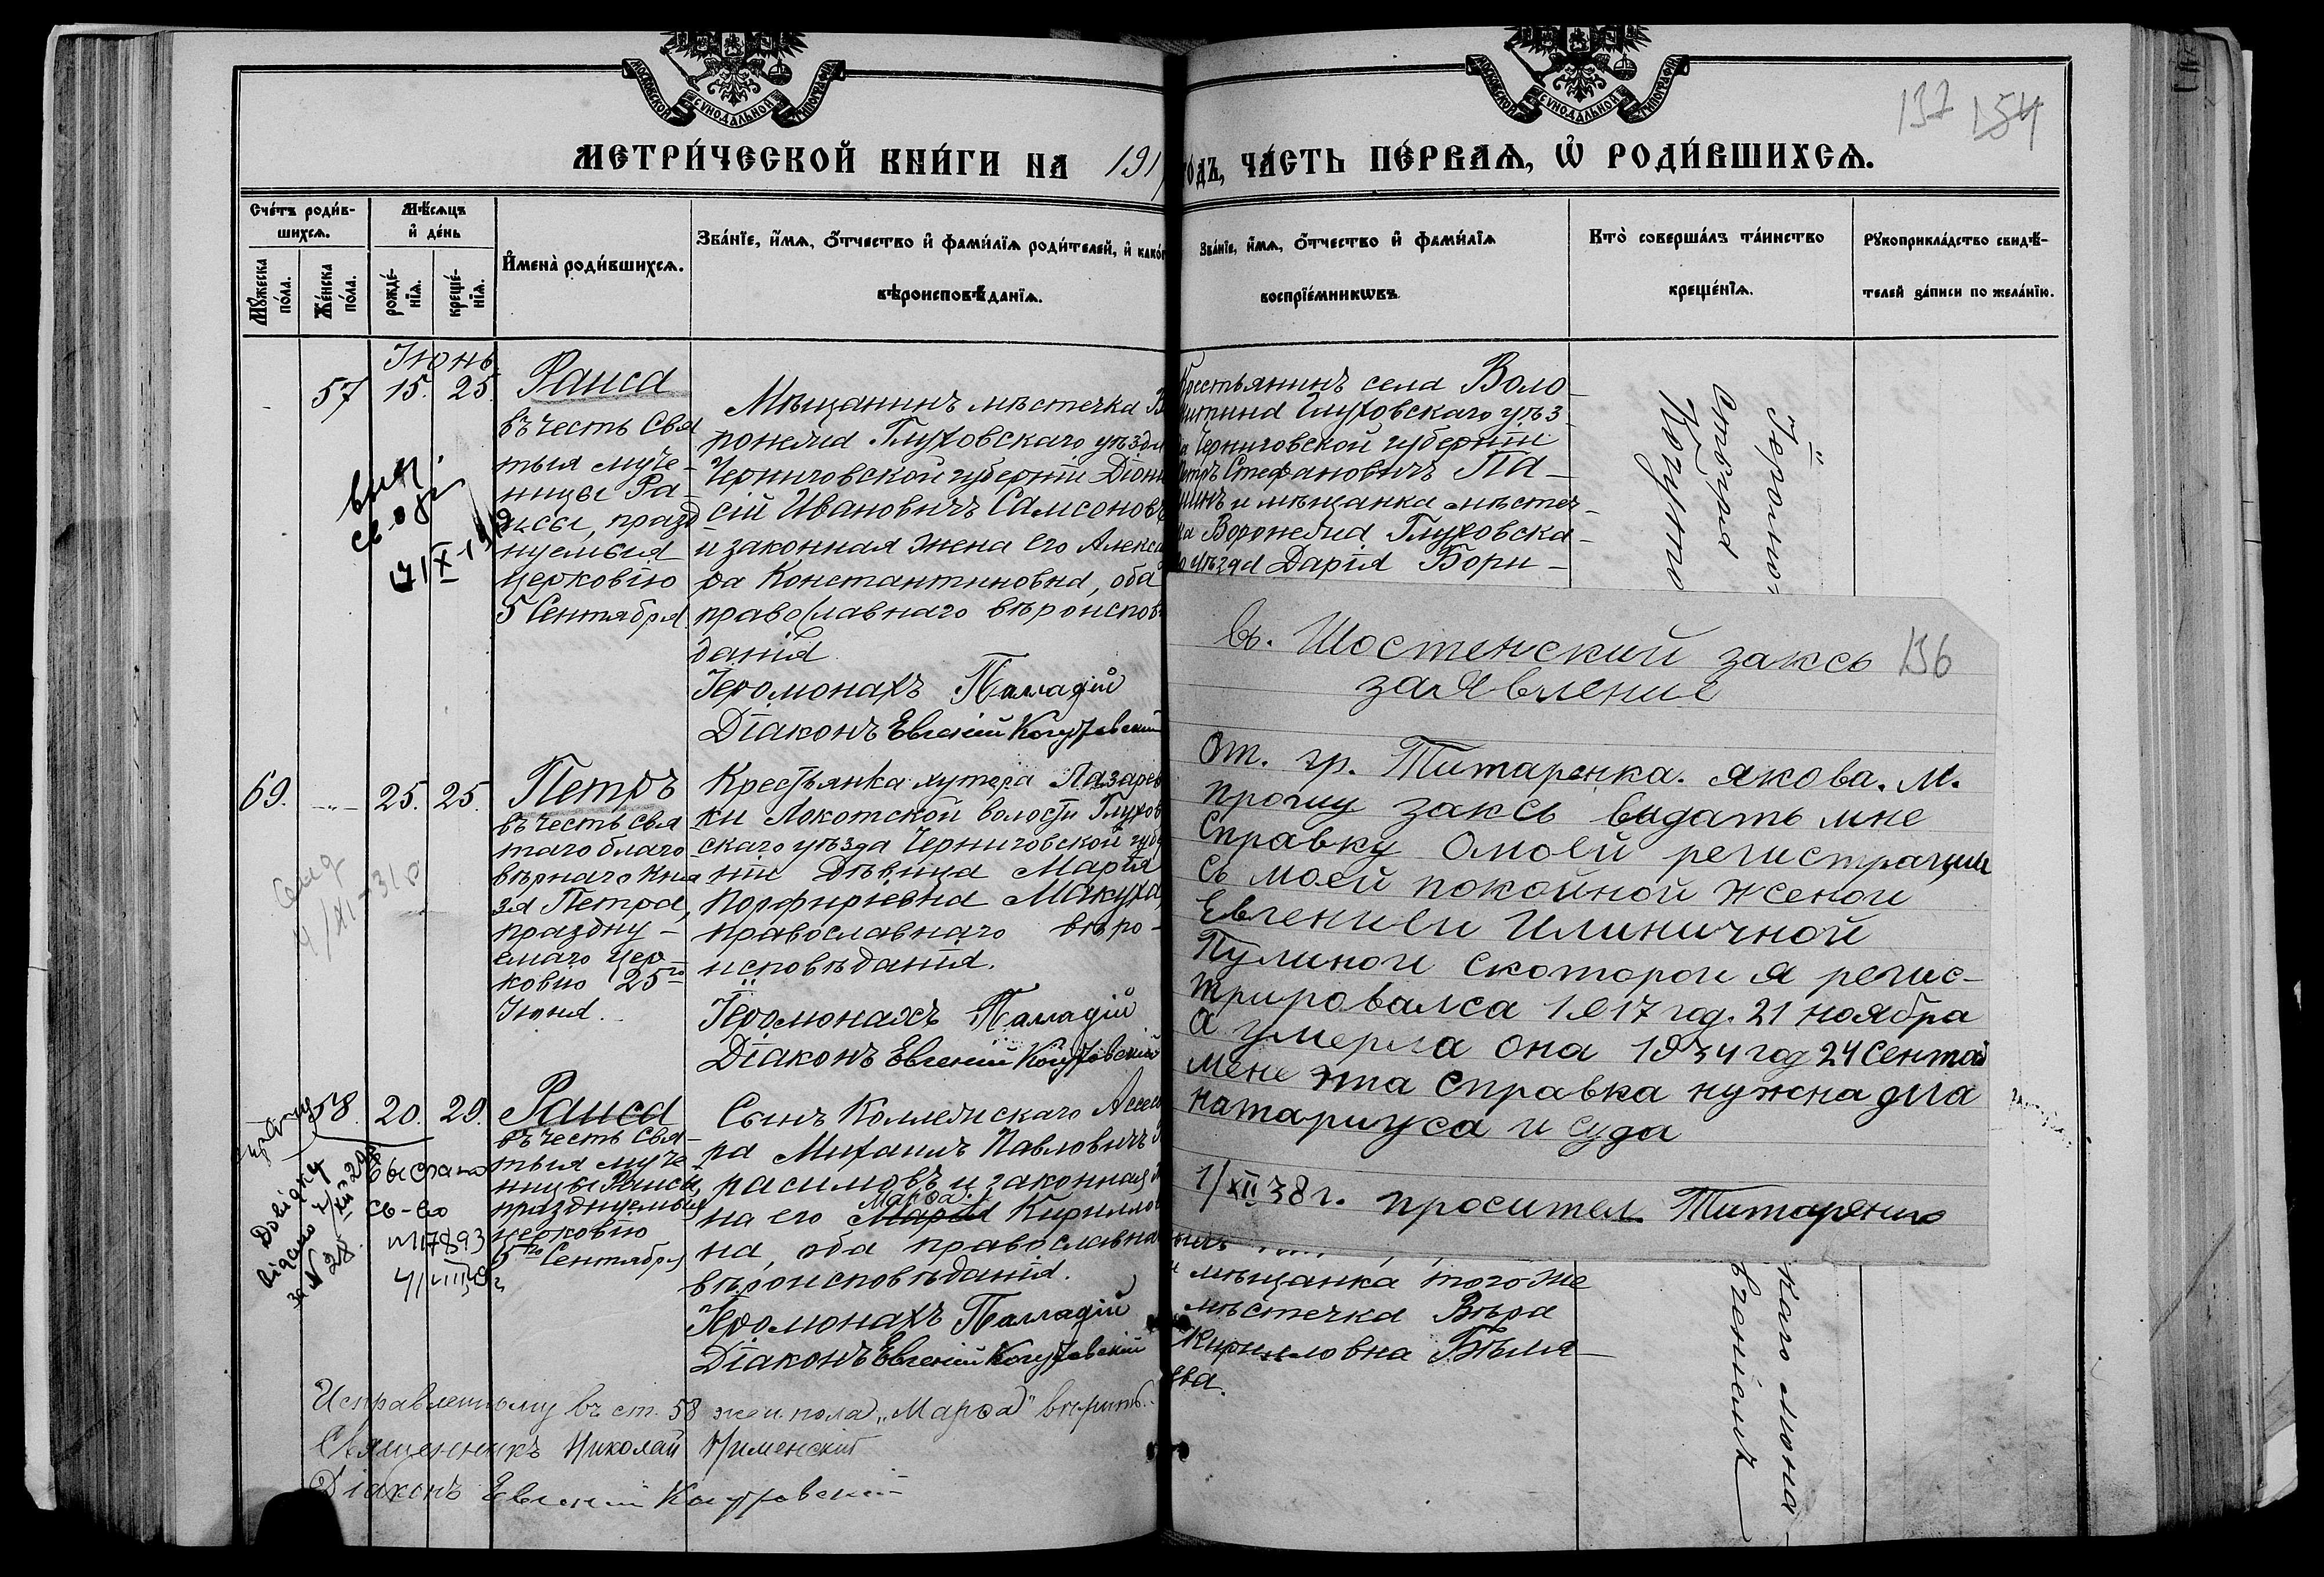 МОСКОВСКОЙ СѴНОДАЛЬНОЙ ТИПОГРАФІИ
МОСКОВСКОЙ СѴНОДАЛЬНОЙ ТИПОГРАФІИ
137 154
МЕТРИ́ЧЕСКОЙ КНИ́ГИ НА 191
ГОДЪ, ЧА́СТЬ ПЕ́РВАѦ, Ѡ҆ РОДИ́ВШИХСѦ.
Сче́тъ роди́в-
шихсѧ.
Мꙋ́жеска по́ла.
Же́нска по́ла.
Мѣ́сѧцъ
и҆ де́нь
рожде́-
нїѧ.
креще́-
нїѧ.
И҆мена̀ роди́вшихсѧ.
Зва́нїе, и҆́мѧ, ѻ҆́тчество и҆ фами́лїѧ роди́телей, и҆ како́г
вѣроисповѣ́данїѧ.
Зва́нїе, и҆́мѧ, ѻ҆́тчество и҆ фами́лїѧ
воспрїе́мникѡвъ.
Кто̀ соверша́лъ та́инство
креще́нїѧ.
Рꙋкоприкла́дство свидѣ́-
телей за́писи по жела́нїю.
Іюнь
57 15. 25.
Раиса
въ честь Свя
тыя муче-
ницы Ра-
исы, празд
нуемыя
церковію
5 Сентября
Мѣщанинъ мѣстечка В
ронежа Глуховскаго уѣзда
Черниговской губерніи Діони
сій Ивановичъ Самсоновъ
и законная жена его Алекса
ра Константиновна, оба
православнаго вѣроисповѣ
данія
Іеромонахъ Палладій
Діаконъ Евгеній
Крестьянинъ села Воло-
китина Глуховскаго уѣз-
да Черниговской губерніи
Петръ Стефановичъ Па-
шинъ и мѣщанка мѣстеч-
ка Воронежа Глуховска-
го уѣзда Дарія Бори-
69. 25. 25.
Петръ
въ честь свя
таго благо
вѣрнаго Кня
зя Петра,
праздну-
емаго цер-
ковію 25го
Іюня.
Крестьянка хутора Лазарев
ки Локотской волости Глухов
скаго уѣзда Черниговской губе
ніи Дѣвица Марія
Порфиріевна Макуха,
православнаго вѣро-
исповѣданія.
Іеромонахъ Палладій
Діаконъ Евгеній
58. 20. 29.
Раиса
въ честь Свя-
тыя муче
ницы Раисы,
празднуемыя
церковію
5го Сентября
Сынъ Коллежскаго Ассесс
ра Михаилъ Павловичъ
расимовъ и законная
на его Марія Кириллов
Марѳа
на, оба православна
вѣроисповѣданія.
Іеромонахъ Палладій
Діаконъ Евгеній
и мѣщанка того же
мѣстечка Вѣра
Кирилловна Бѣля-
ева.
Исправленному въ ст. 58 жен. пола "Марѳа" вѣрить.
Священникъ Николай
Діаконъ Евгеній
136
Въ. Шостенский заксъ
заявление
От. гр. Титаренка. Якова. М.
прошу заксь выдать мне
Справку Омоей регистрации
Съ моей покойной женой
Евгенией Илиничной
Пулиной Скоторой я регис-
трировалса 1917 год. 21 ноября
а умерла она 1934 год 24 Сентяб
мене эта Справка нужна дла
натариуса и Суда
1/XII 38 г. просител. Титаренко